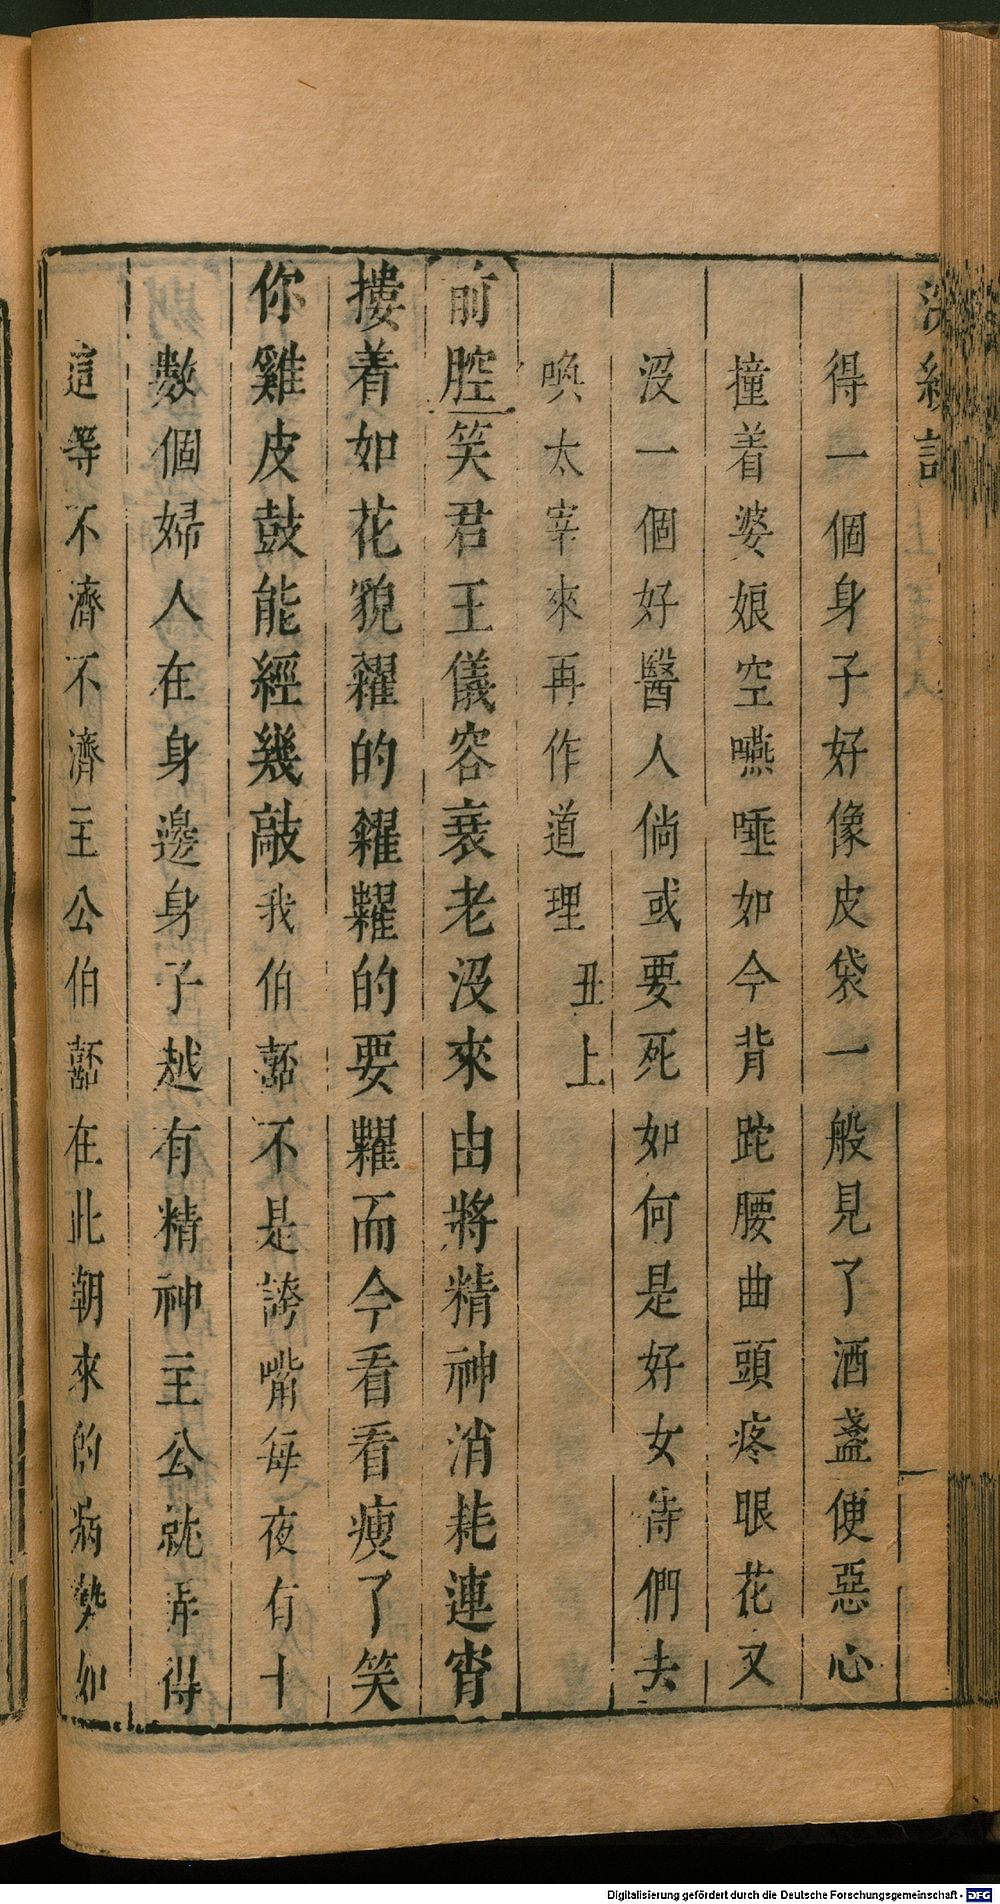 浣紗記
得一個身子好像皮袋一般見了酒盞便惡心
撞着婆娘空嚥唾如今背跎腰曲頭疼眼花又
沒一個好醫人倘或要死如何是好女侍們去
喚太宰來再作道理 丑上
前腔笑君王儀容衰老沒來由將精神消耗連宵
摟着如花貌糴的糴糶的要糶而今看看瘦了笑
你雞皮鼓能經幾敲我伯嚭不是誇嘴每夜有十
數個婦人在身邊身子越有精神主公就弄得
這等不濟不濟主公伯嚭在此朝來的病勢如
Digitalisierung gefördert durch die Deutsche Forschungsgemeinschaft - DFG